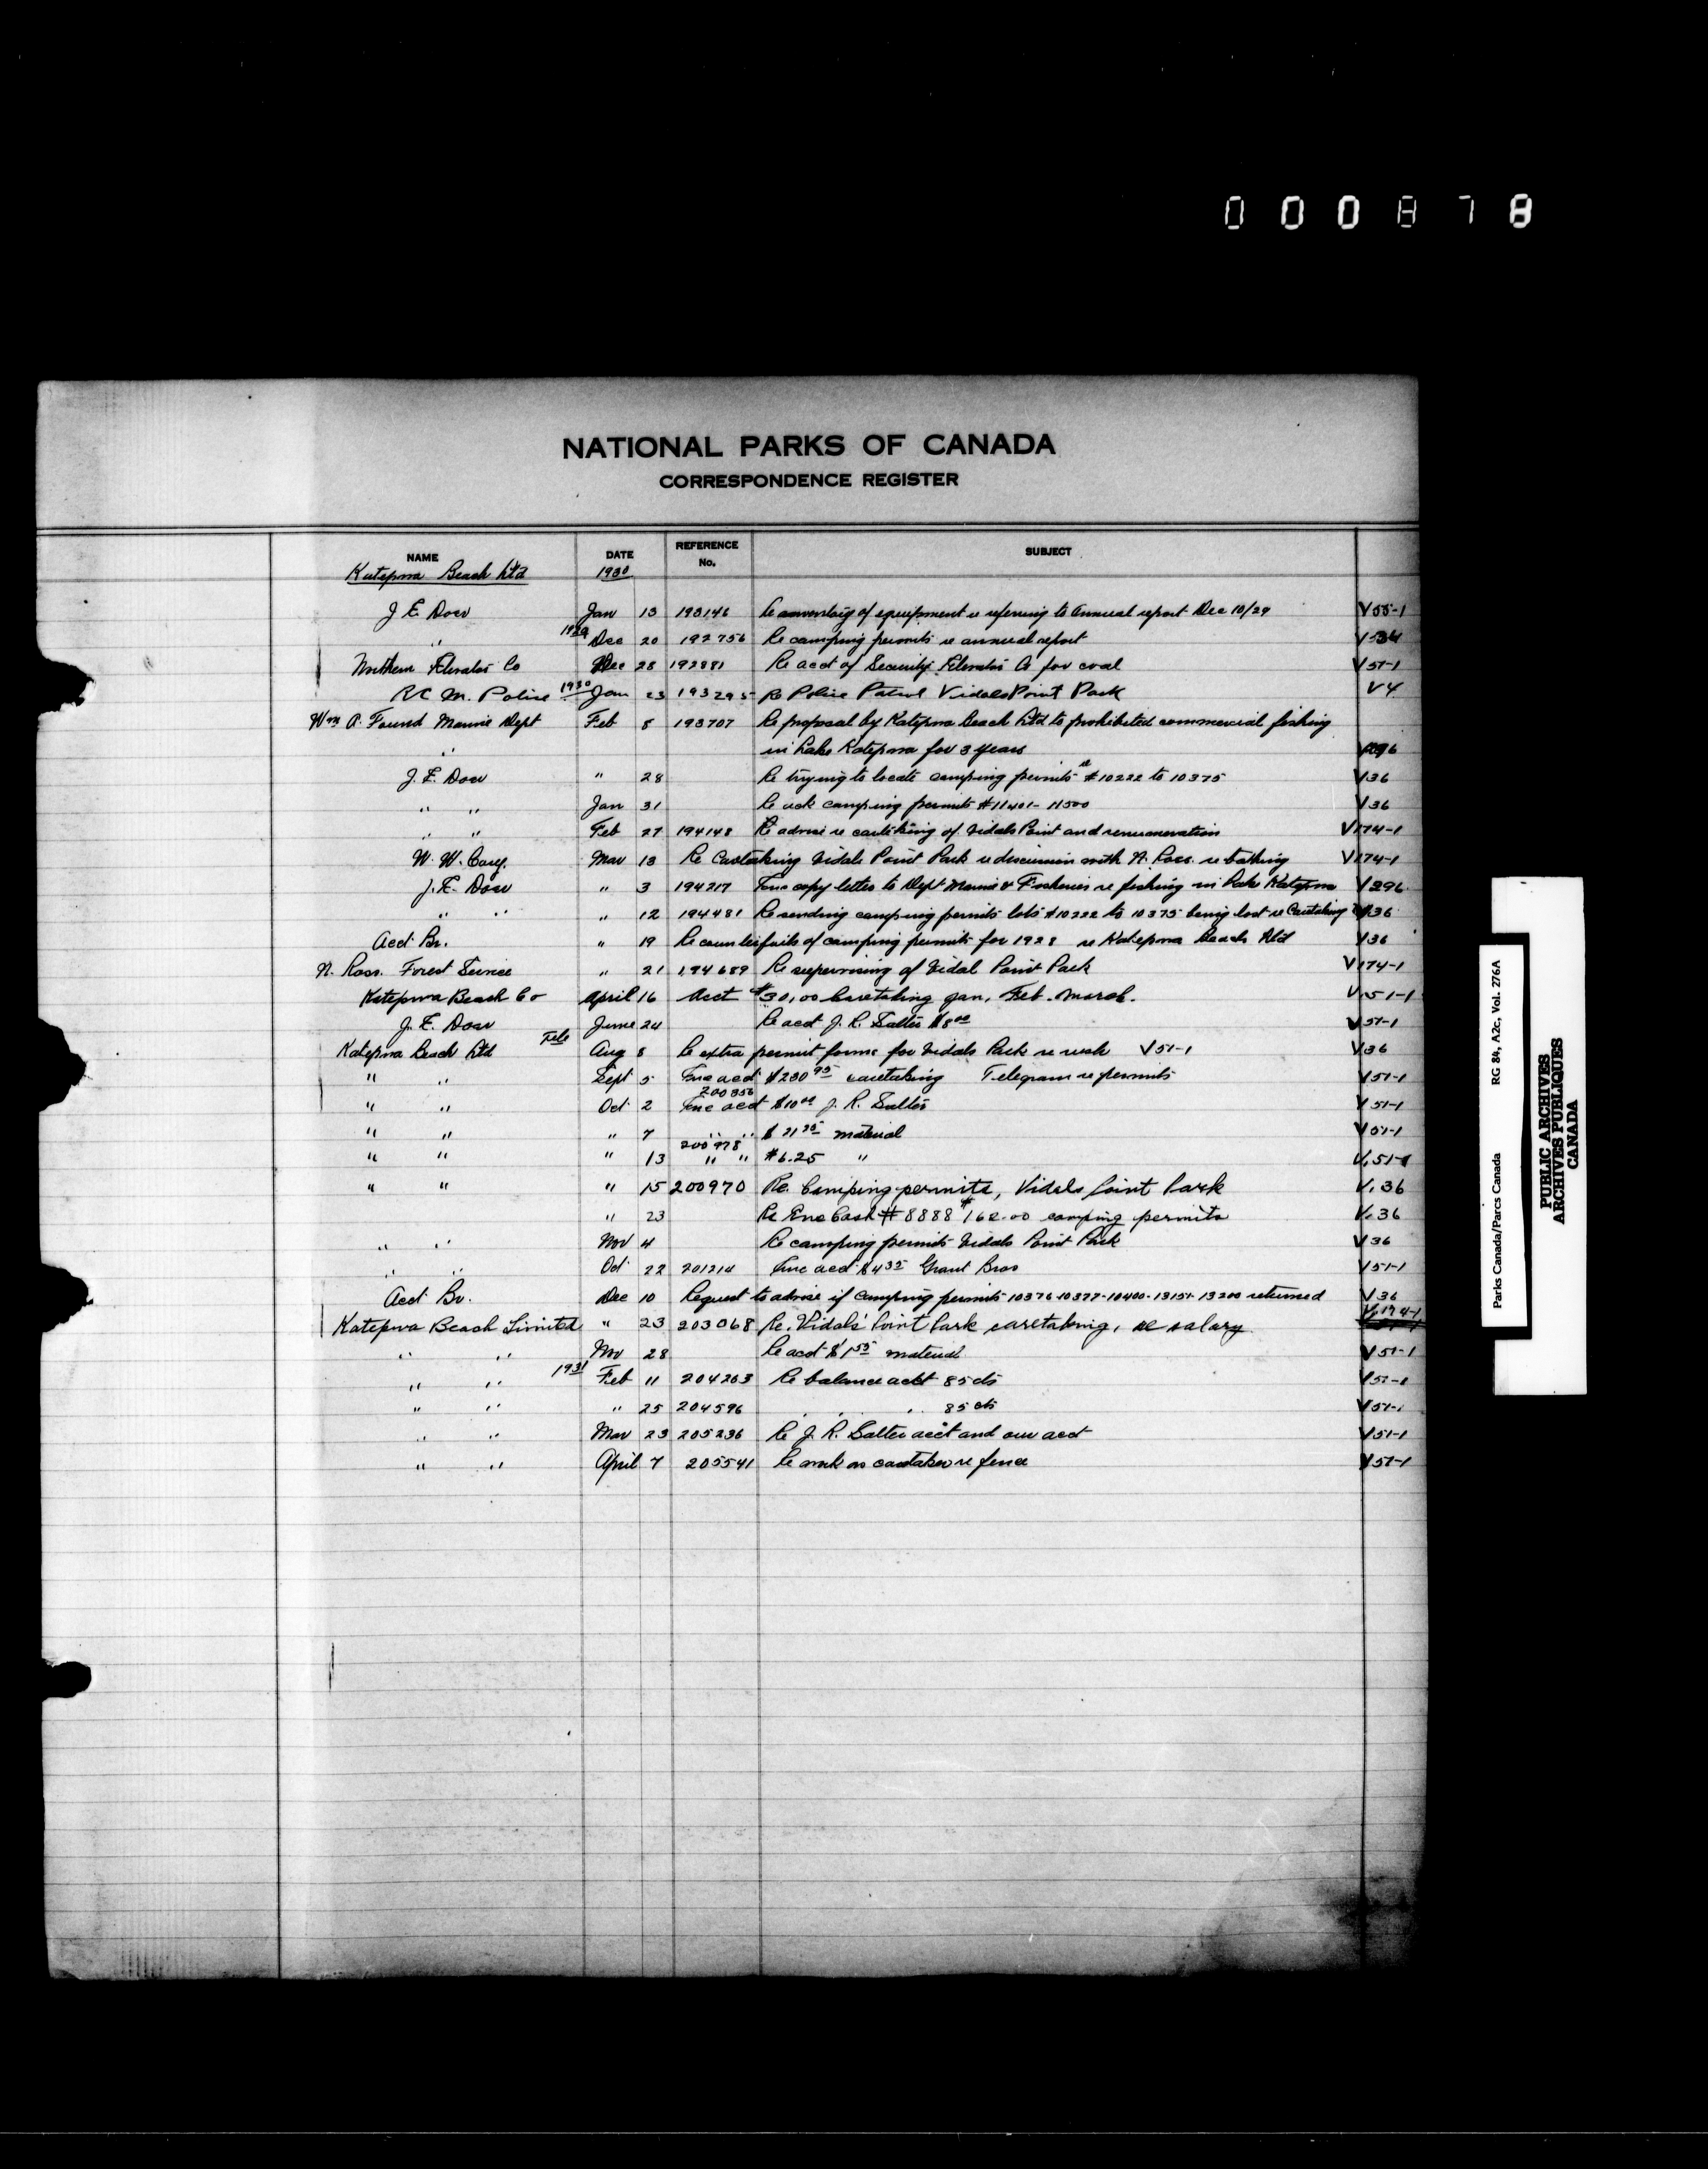 000878
NATIONAL PARKS OF CANADA
CORRESPONDENCE REGISTER
NAME DATE REFERENCE No. SUBJECT
Katepwa Beach Ltd 1930
J E. Dow Jan 13 193146 Re inventory of equipment re referring to Annual report Dec 10/29 V55-1
" 1929 Dec 20 192756 Re camping permits re annual report V 36
Northern Elevator Co Dec 28 192881 Re acct of Security Elevator Co for coal V51-1
R C M. Police 1930 Jan 23 193295 Re Police Patrol Vidals Point Park V4
Wm A. Found Marine Dept Feb 8 193707 Re proposal by Katepwa Beach Ltd to prohibited commercial fishing
" in Lake Katepwa for 3 years V296
J. E. Dow " 28 Re trying to locate camping permits #10222 to 10375 V36
" " Jan 31 Re ack camping permits #11401-11500 V36
" " Feb 27 194148 Re advise re caretaking of Vidals Point and renumeration V174-1
W. W. Cory. Mar 13 Re Caretaking Vidals Point Park re discussion with N. Ross. re bathing V174-1
J. E. Dow " 3 194217 Enc copy letter to Dept Marine & Fisheries re fishing in Lake Katepwa V296
" " " 12 194481 Re sending camping permits lots #10222 to 10375 being lost re Caretaking V36
Acct Br. " 19 Re counterfoils of camping permits for 1928 re Katepwa Beach Ltd V36
N. Ross. Forest Service " 21 194689 Re supervising of Vidal Point Park V174-1
Katepwa Beach Co April 16 Acct $30.00 Caretaking Jan, Feb. March. V.51-1
J. E. Dow June 24 Re acct J. R. Salter $8.00 V51-1
Katepwa Beach Ltd Tele Aug 8 Re extra permit forms for Vidals Park re V51-1 V36
" " Sept 5 Enc acct $230.95 caretaking Telegram re permits V51-1
" " Oct 2 200856 Enc acct $10.00 J. R. Salter V51-1
" " " 7 " " $21.25 material V51-1
" " " 13 200978 " " $6.25 " V.51-1
" " " 15 200970 Re. Camping permits, Vidals Point Park V.36
" 23 Re Enc Cash #8888 $162.00 camping permits V.36
" " Nov 4 Re camping permits Vidals Point Park V36
" " Oct 22 201214 Enc acct $4.35 Grant Bros V51-1
Acct Br. Dec 10 Request to advise if camping permits 10376-10377-10400-13151-13200 returned V36
Katepwa Beach Limited " 23 203068 Re. Vidals' Point Park caretaking, re salary V.174-1
" " Nov 28 Re acct $1.55 material V51-1
" " 1931 Feb 11 204263 Re balance acct 85cts V51-1
" " " 25 204596 " " " 85 cts V51-1
" " Mar 23 205236 Re J. R. Salter acct and our acct V51-1
" " April 7 205541 Re work on caretaker re fence V51-1
Parks Canada/Parcs Canada RG 84, A2c, Vol. 276A
PUBLIC ARCHIVES
ARCHIVES PUBLIQUES
CANADA